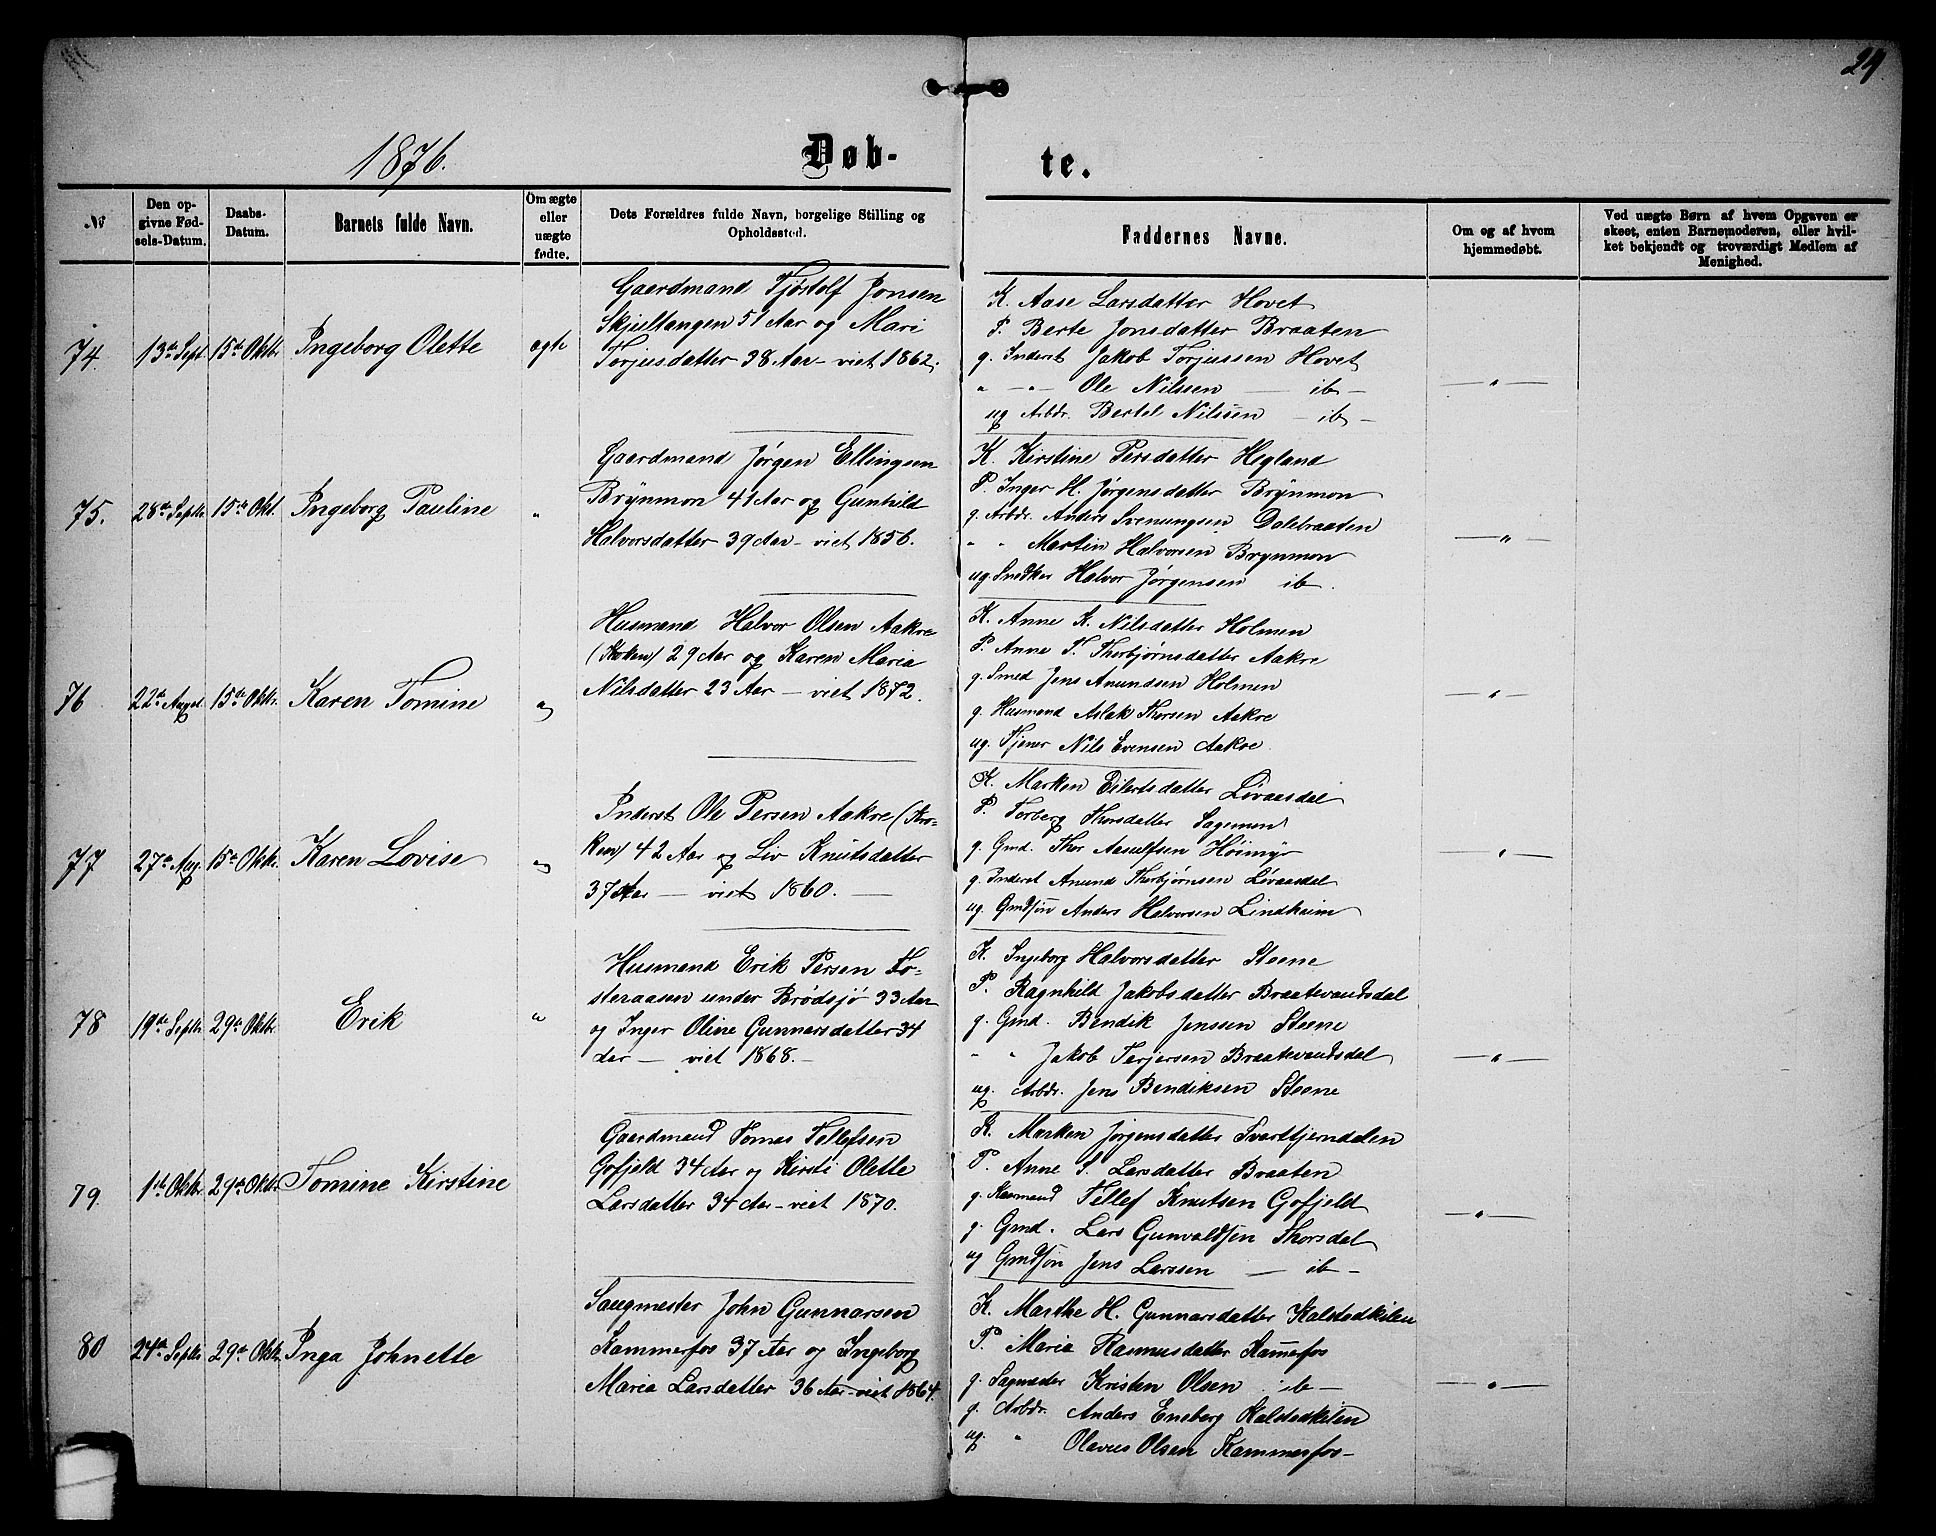 24
1876.
Døb-
te.
№
Den op-
givne Fød-
sels-Datum.
Daabs-
Datum.
Barnets fulde Navn.
Om ægte
eller
uægte
fødte.
Dets Forældres fulde Navn, borgelige Stilling og
Opholdssted.
Faddernes Navne.
Om og af hvem
hjemmedøbt.
Ved uægte Børn af hvem Opgaven er
skeet, enten Barnemoderen, eller hvil-
ket bekjendt og troværdigt Medlem af
Menighed.
74. 13de Sept 15de Oktbr. Ingeborg Olette ægte
Gaardmand Tjøstolf Jonsen
Skjeltangen 51 Aar og Mari
Torjusdatter 38 Aar - viet 1862.
K. Aase Larsdatter Hovet
P. Berte Jonsdatter Braaten
g. Inderst Jakob Torjussen Hovet
" - " - Ole Nilssen - ib -
ug Arbdr. Bertel Nilssen - ib -
— " —
75. 28de Septbr. 15de Okt. Ingeborg Pauline "
Gaardmand Jørgen Ellingsen
Brynmon 41 Aar og Gunhild
Halvorsdatter 39 Aar - viet 1856.
K. Kirstine Persdatter Hegland
P. Inger H. Jørgensdatter Brynmon
g. Arbdr. Anders Svenungsen Dalebraaten
" " Martin Halvorsen Brynmon
ug. Snedker Halvor Jørgensen ib.
— " —
76 22de August 15de Oktbr. Karen Tomine "
Husmand Halvor Olsen Aakre
(Kroken) 29 Aar og Karen Maria
Nilsdatter 23 Aar - viet 1872.
K. Anne K. Nilsdatter Holmen
P. Anne T. Thorbjørnsdatter Aakre
g. Smed Jens Anundsen Holmen
g. Husmand Aslak Thorsen Aakre
ug. Tjener Nils Evensen Aakre.
— " —
77 27de Aug. 15de Oktbr. Karen Lovise "
Inderst Ole Persen Aakre (Kro-
ken) 42 Aar og Liv Knutsdatter
37 Aar — viet 1860. —
K. Marken Eilertsdatter Løvaasdal
P. Torberg Thorsdatter Sagmen
g. Gmd. Thor Aasulfsen Høimyr
g. Inderst Anund Thorbjørnsen Løvaasdal
ug. Gmdsøn Anders Halvorsen Lindheim
— " —
78 19de Septbr. 29de Oktbr. Erik "
Husmand Erik Persen To-
steraasen under Brødsjø 33 Aar
og Inger Oline Gunnarsdatter 34
Aar — viet 1868. —
K. Ingeborg Halvorsdatter Steene
P. Ragnhild Jakobsdatter Braatevandsdal
g. Gmd. Bendik Jenssen Steene
" " Jakob Terjersen Braatevandsdal
ug. Arbdr. Jens Bendiksen Steene
— " —
79. 1ste Oktbr. 29de Oktbr. Tomine Kirstine
Gaardmand Tomas Tellefsen
Gofjeld 34 Aar og Kirsti Olette
Larsdatter 34 Aar - viet 1870.
K. Marken Jørgensdatter Svarttjerndalen
P. Anne S. Larsdatter Braaten
g. Kaarmand Tellef Knutsen Gofjeld
g. Gmd. Lars Gunvaldsen Thorsdal
ug Gmdsøn Jens Larssen — ib -
— " —
80 24de Septbr. 29de Oktbr. Inga Johnette
Saugmester John Gunnarsen
Kammerfos 37 Aar og Ingeborg
Maria Larsdatter 36 Aar - viet 1864.
K. Marthe H. Gunnarsdatter Kalstadkilen
P. Maria Rasmusdatter Kam̅erfos
g. Sagmester Kristen Olsen ib -
g. Arbdr. Anders Eneberg Kalstadkilen
ug " Olaves Olsen Kammerfos -
— " —